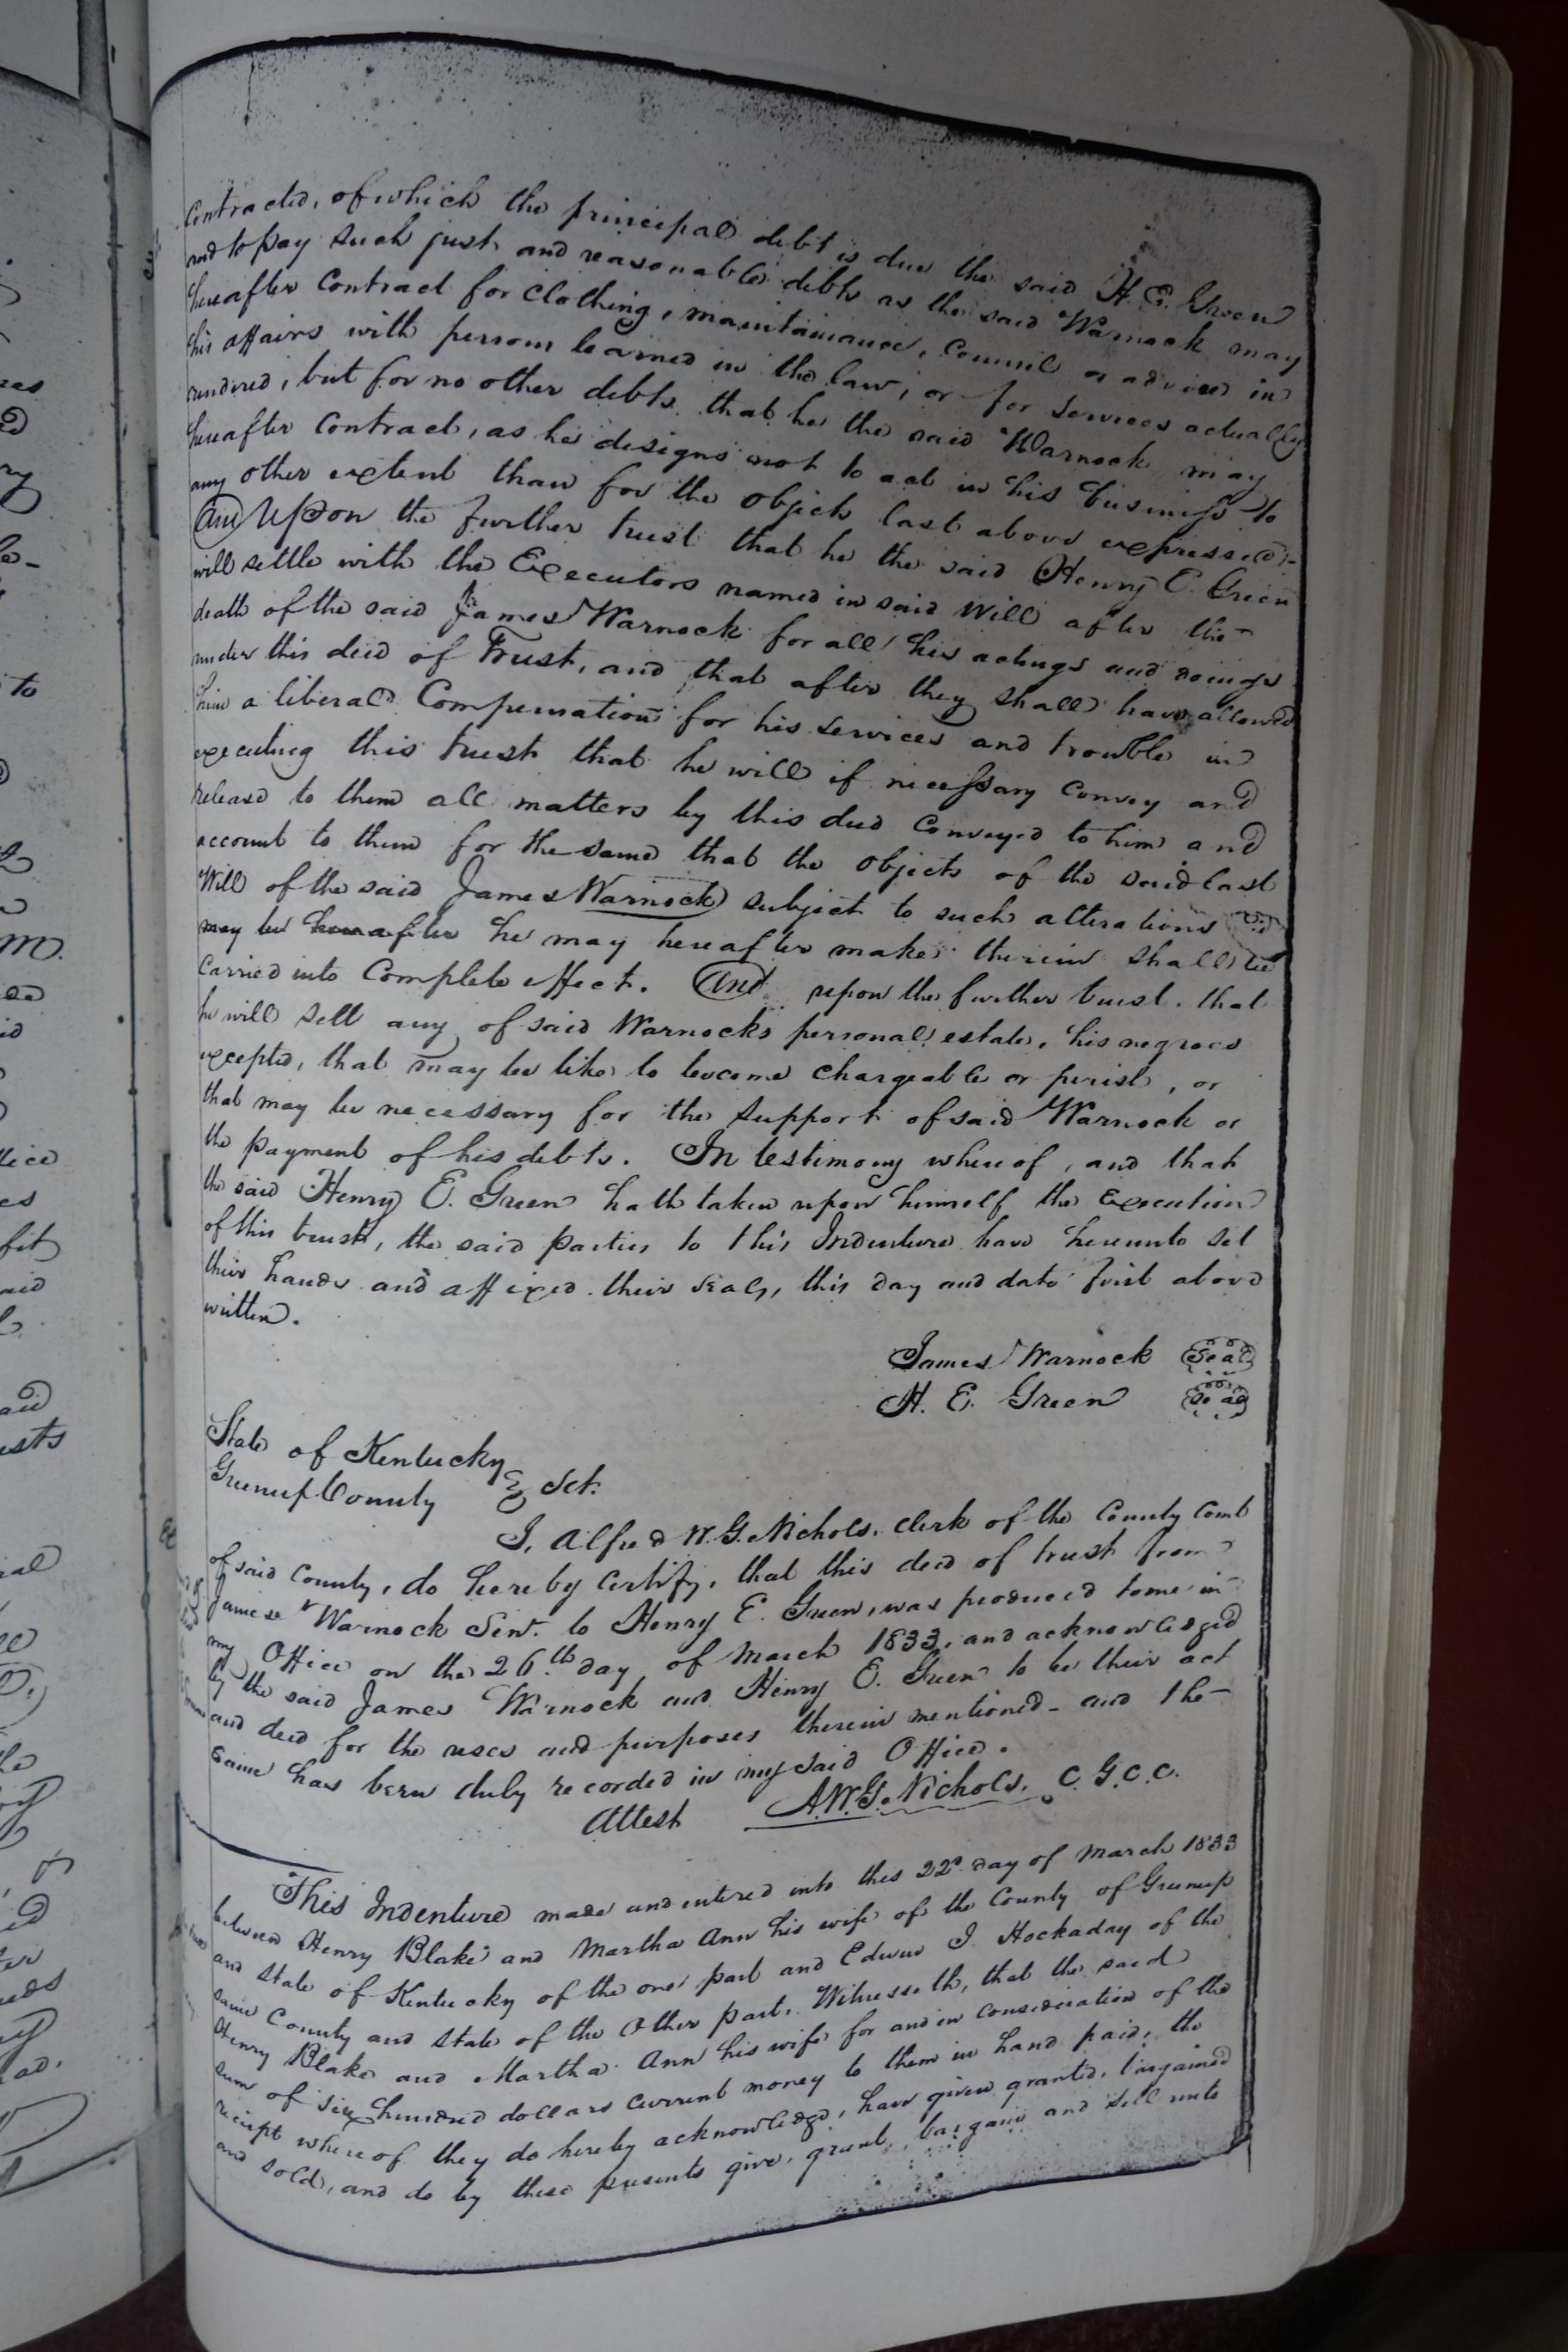 contracted, of which the principal debt is due the said H. E. Green
and to pay such just and reasonable debts as the said Warnock may
hereafter Contract for Clothing, maintainance, Council or advice in
his affairs with persons learned in the law, or for services actually
rendered, but for no other debts that he the said Warnock may
hereafter Contract, as he designs not to act in his business to
any other extent than for the objects last above expressed-
And Upon the further trust that he the said Henry E. Green
will settle with the Executors named in said Will after the
death of the said James Warnock for all his actings and doings
under this deed of Trust, and that after they shall have allowed
him a liberal Compensation for his services and trouble in
executing this trust that he will if necessary convey and
release to them all matters by this deed conveyed to him and
account to them for the same that the objects of the said last
Will of the said James Warnock subject to such alterations
may be hereafter he may hereafter make therein shall be
Carried into Complete effect. And upon the further trust. that
he will sell any of said Warnocks personal estate, his negroes
excepted, that may be like to become chargeable or perish, or
that may be necessary for the support of said Warnock or
the payment of his debts. In testimony whereof, and that
the said Henry E. Green hath taken upon himself the Execution
of this trust, the said parties to this Indenture have hereunto set
their hands and affixed their seals, this day and date first above
written.
James Warnock Seal
H. E. Green Seal
State of Kentucky
Greenup County } Sct.
I, Alfred W. G. Nichols, clerk of the County Court
of said County, do hereby certify, that this deed of trust from
James Warnock Senr. to Henry E. Green, was produced to me in
my Office on the 26th day of March 1833, and acknowledged
by the said James Warnock and Henry E. Green to be their act
and deed for the uses and purposes therein mentioned - and the
same has been duly recorded in my said Office.
Attest A.W.G. Nichols. C. G. C. C.
This Indenture made and entered into this 22d day of March 1833
between Henry Blake and Martha Ann his wife of the County of Greenup
and State of Kentucky of the one part and Edwin I. Hockaday of the
same County and State of the Other part. Witnesseth, that the said
Henry Blake and Martha Ann his wife for and in consideration of the
sum of six hundred dollars current money to them in hand paid, the
receipt whereof they do hereby acknowledge, have given granted, bargained
and sold, and do by these presents give, grant, bargain and sell unto